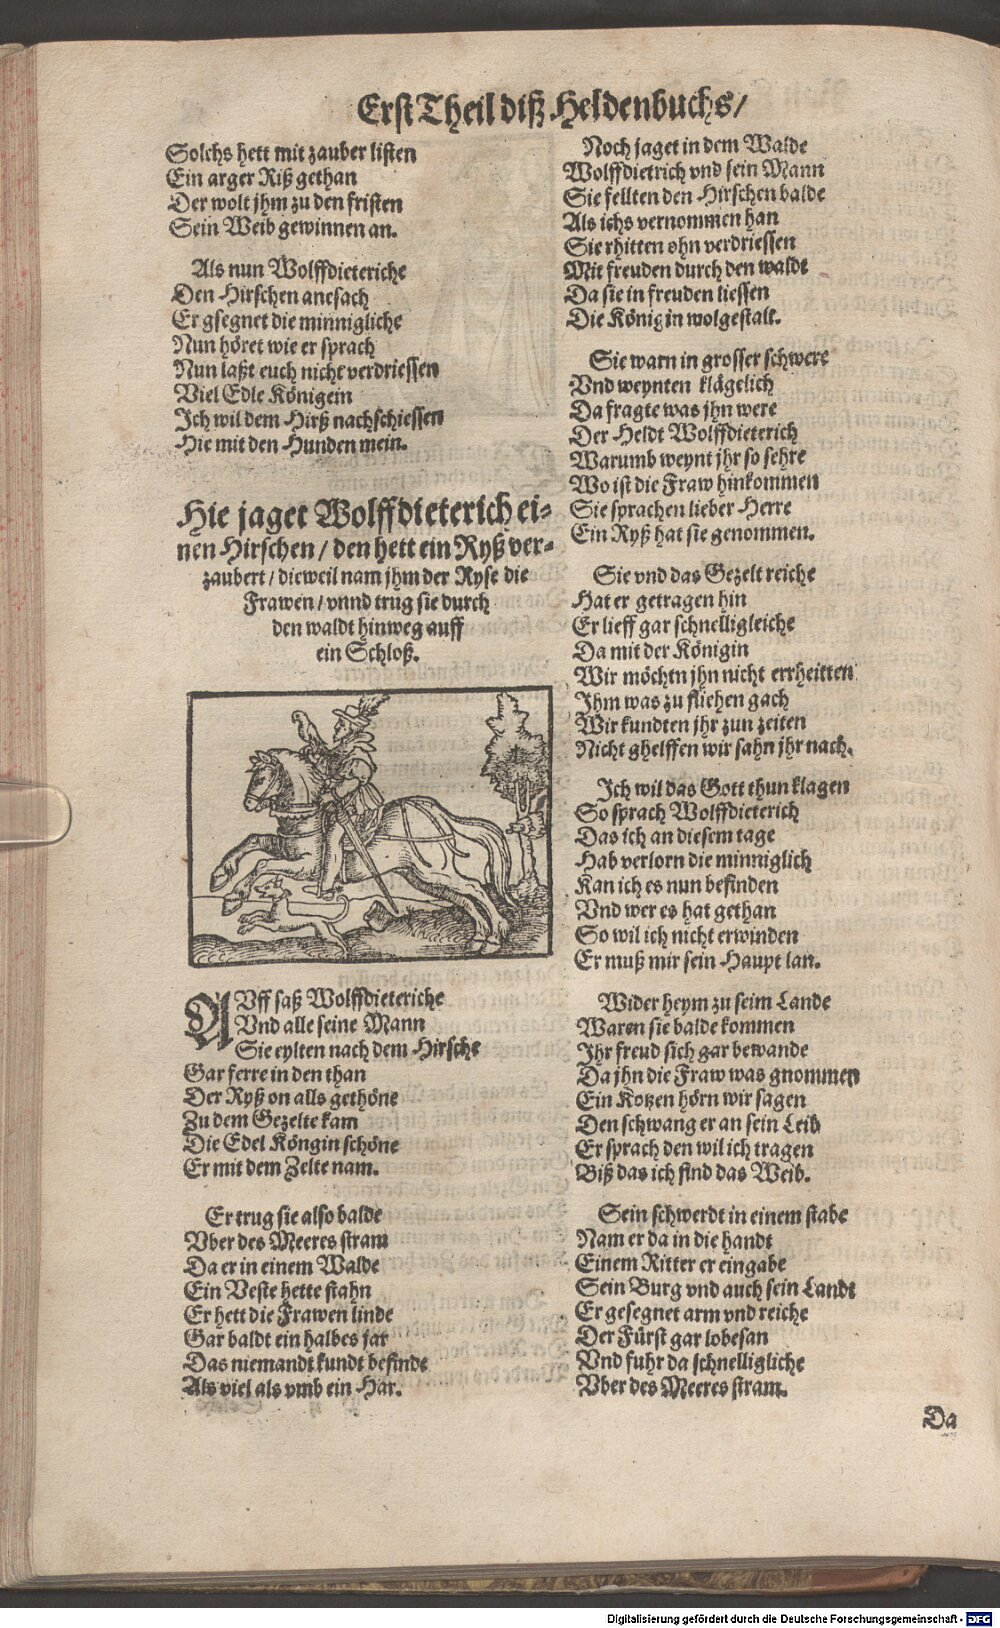 Erst Theil diß Heldenbuchs/
Solchs hett mit zauber listen
Ein arger Riß gethan
Der wolt jhm zu den fristen
Sein Weib gewinnen an.
Als nun Wolffdieteriche
Den Hirschen anesach
Er gsegnet die minnigliche
Nun höret wie er sprach
Nun laßt euch nicht verdriessen
Viel Edle Königein
Ich wil dem Hirß nachschiessen
Hie mit den Hunden mein.
Hie jaget Wolffdieterich ei-
nen Hirschen/ den hett ein Ryß ver-
zaubert/ dieweil nam jhm der Ryse die
Frawen/ vnnd trug sie durch
den waldt hinweg auff
ein Schloß.
AVff saß Wolffdieteriche
Vnd alle seine Mann
Sie eylten nach dem Hirsche
Gar ferre in den than
Der Ryß on alls gethöne
Zu dem Gezelte kam
Die Edel Köngin schöne
Er mit dem Zelte nam.
Er trug sie also balde
Vber des Meeres stram
Da er in einem Walde
Ein Veste hette stahn
Er hett die Frawen linde
Gar baldt ein halbes jar
Das niemandt kundt befinde
Als viel als vmb ein Har.
Noch jaget in dem Walde
Wolffdietrich vnd sein Mann
Sie fellten den Hirschen balde
Als ichs vernommen han
Sie rhitten ohn verdriessen
Mit freuden durch den waldt
Da sie in freuden liessen
Die Königin wolgestalt.
Sie warn in grosser schwere
Vnd weynten klägelich
Da fragte was jhn were
Der Heldt Wolffdieterich
Warumb weynt jhr so sehre
Wo ist die Fraw hinkommen
Sie sprachen lieber Herre
Ein Ryß hat sie genommen.
Sie vnd das Gezelt reiche
Hat er getragen hin
Er lieff gar schnelligleiche
Da mit der Königin
Wir möchtn jhn nicht errheitten
Ihm was zu fliehen gach
Wir kundten jhr zun zeiten
Nicht ghelffen wir sahn jhr nach.
Ich wil das Gott thun klagen
So sprach Wolffdieterich
Das ich an diesem tage
Hab verlorn die minniglich
Kan ich es nun befinden
Vnd wer es hat gethan
So wil ich nicht erwinden
Er muß mir sein Haupt lan.
Wider heym zu seim Lande
Waren sie balde kommen
Ihr freud sich gar bewande
Da jhn die Fraw was gnommen
Ein Kotzen hörn wir sagen
Den schwang er an sein Leib
Er sprach den wil ich tragen
Biß das ich find das Weib.
Sein schwerdt in einem stabe
Nam er da in die handt
Einem Ritter er eingabe
Sein Burg vnd auch sein Landt
Er gesegnet arm vnd reiche
Der Fürst gar lobesan
Vnd fuhr da schnelligliche
Vber des Meeres stram.
Da
Digitalisierung gefördert durch die Deutsche Forschungsgemeinschaft - DFG